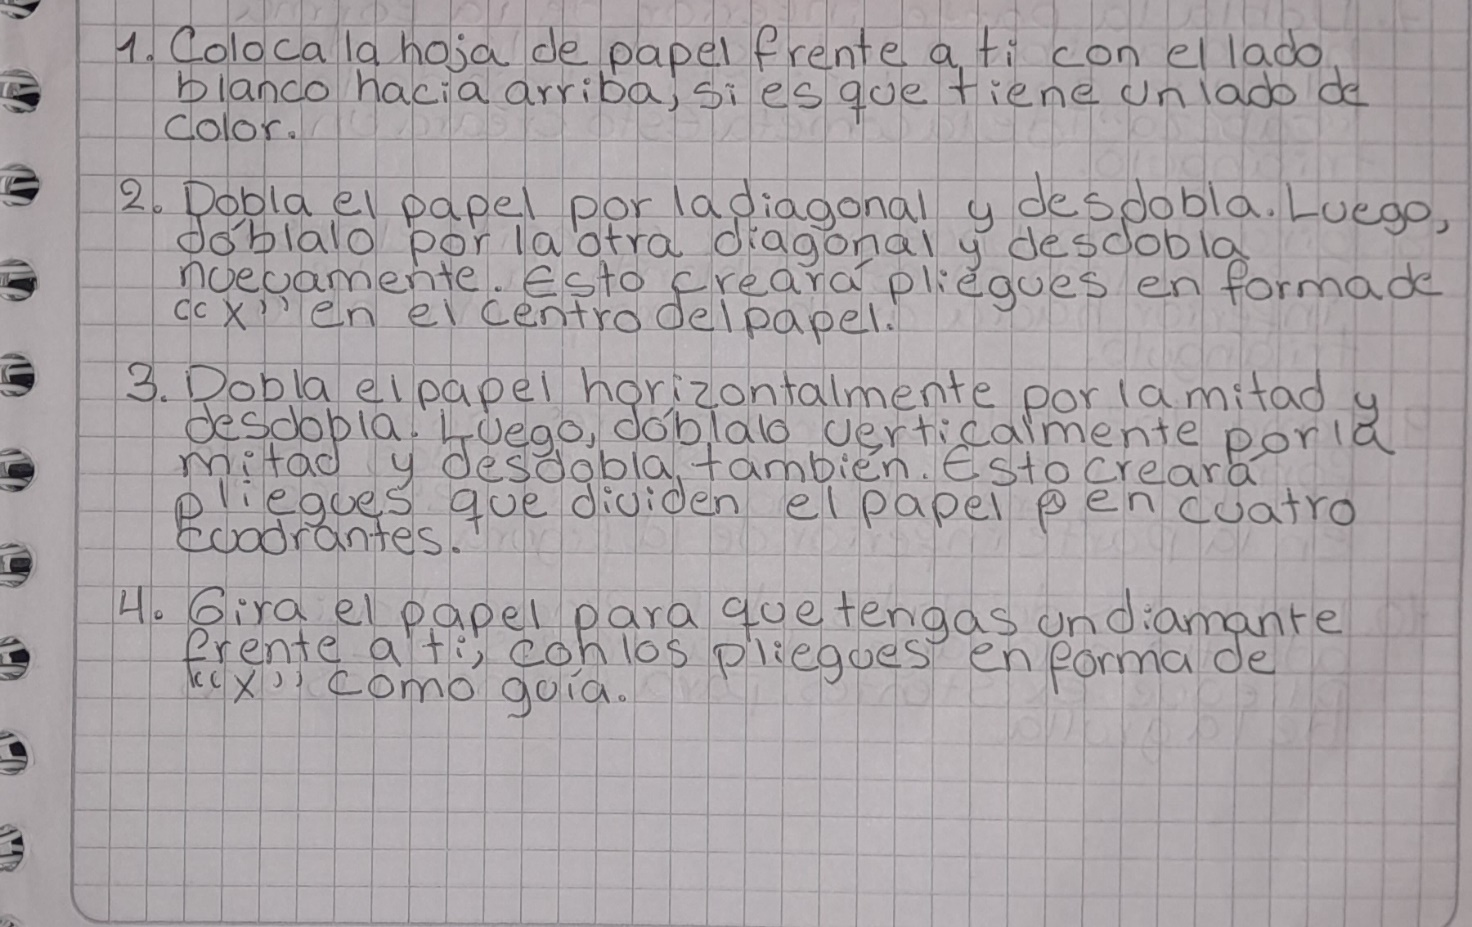 1. Coloca la hoja de papel frente a ti con el lado
blanco hacia arriba, si es que tiene un lado de
color.
2. Dobla el papel por la diagonal y desdobla. Luego,
dóblalo por la otra diagonal y desdobla
nuevamente. Esto creará pliegues en forma de
"x" en el centro del papel.
3. Dobla el papel horizontalmente por la mitad y
desdobla. Luego, dóblalo verticalmente por la
mitad y desdobla también. Esto creará
pliegues que dividen el papel en cuatro
cuadrantes.
4. Gira el papel para que tengas un diamante
frente a ti, con los pliegues en forma de
"x" como guía.